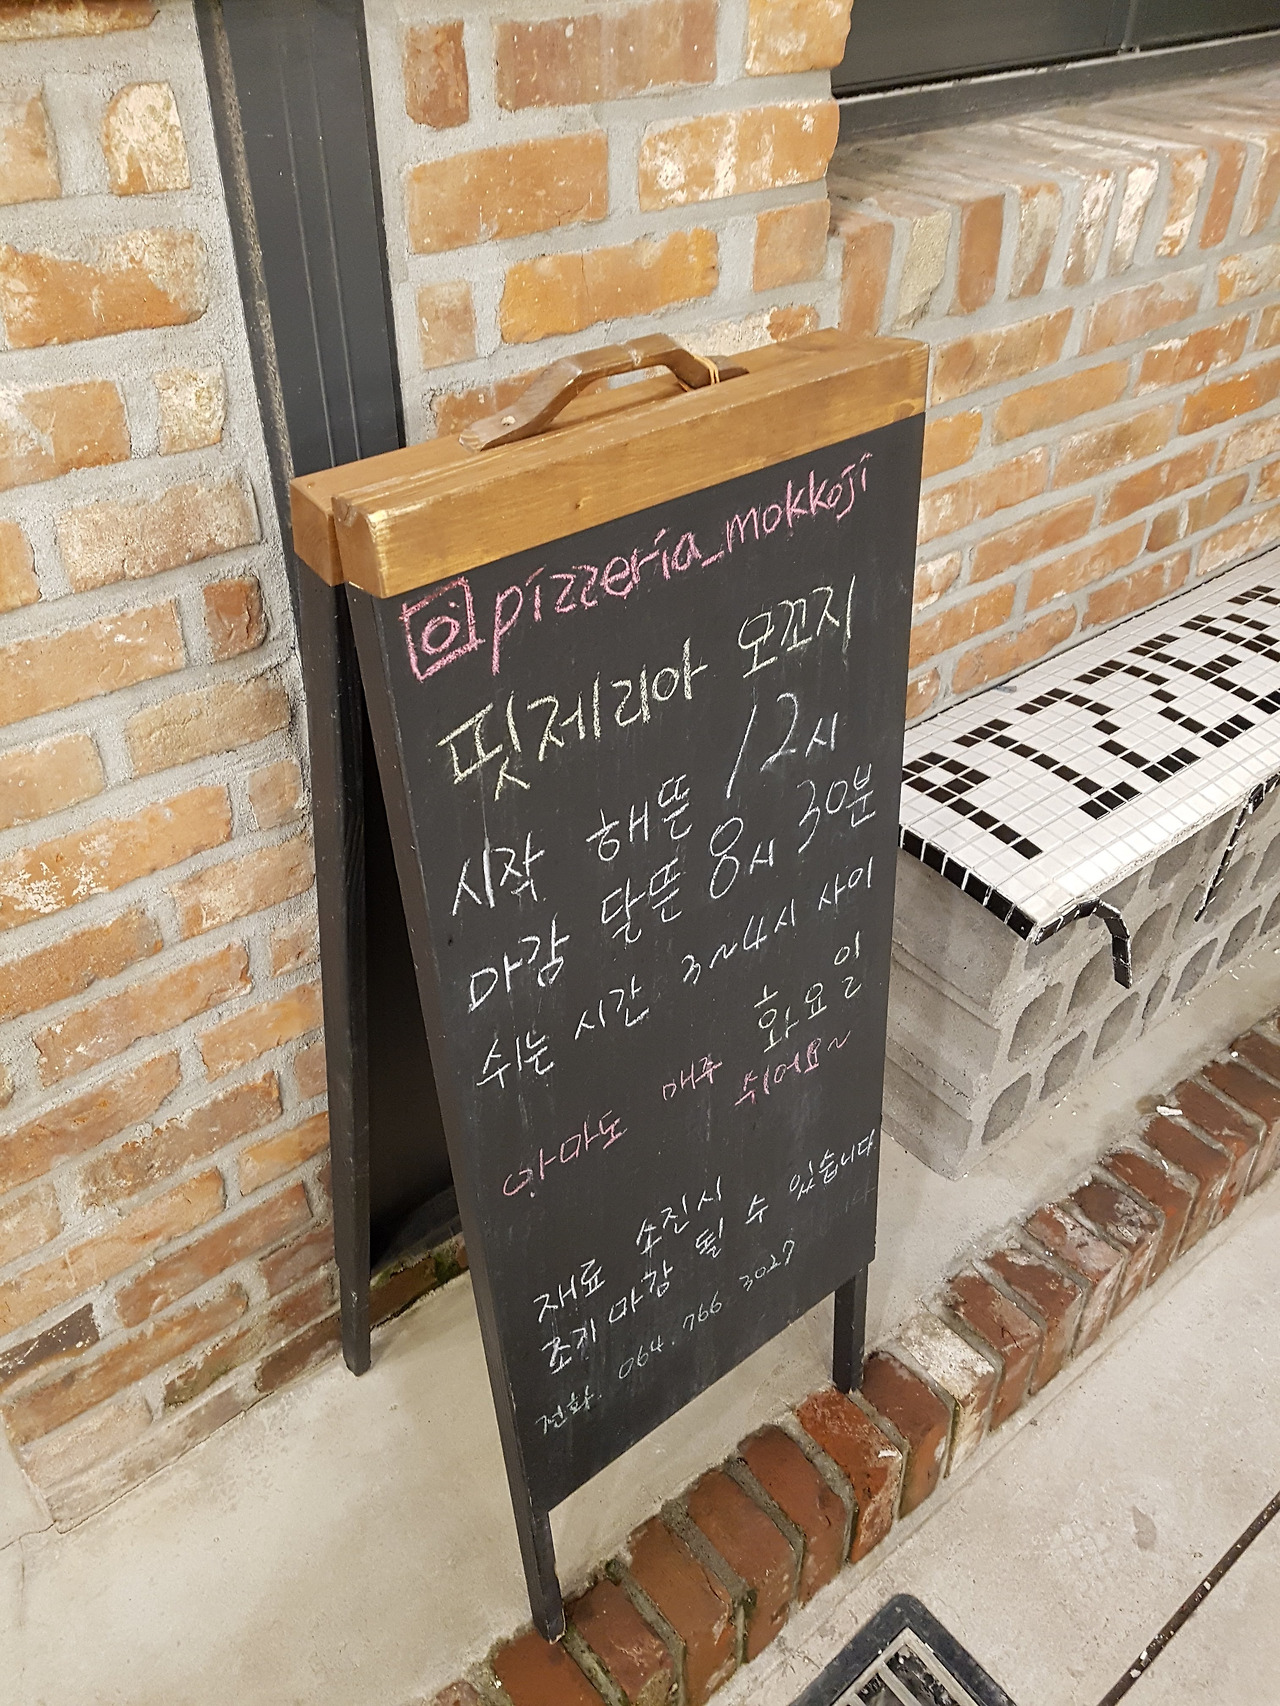 pizzeria_mokkoji
핏제리아 모꼬지
시작 해뜬 12시
마감 달뜬 8시 30분
쉬는 시간 3~4시 사이
아마도 매주 화요일
쉬어요~
재료 소진시
조기 마감 될 수 있습니다
전화. 064. 766 3027